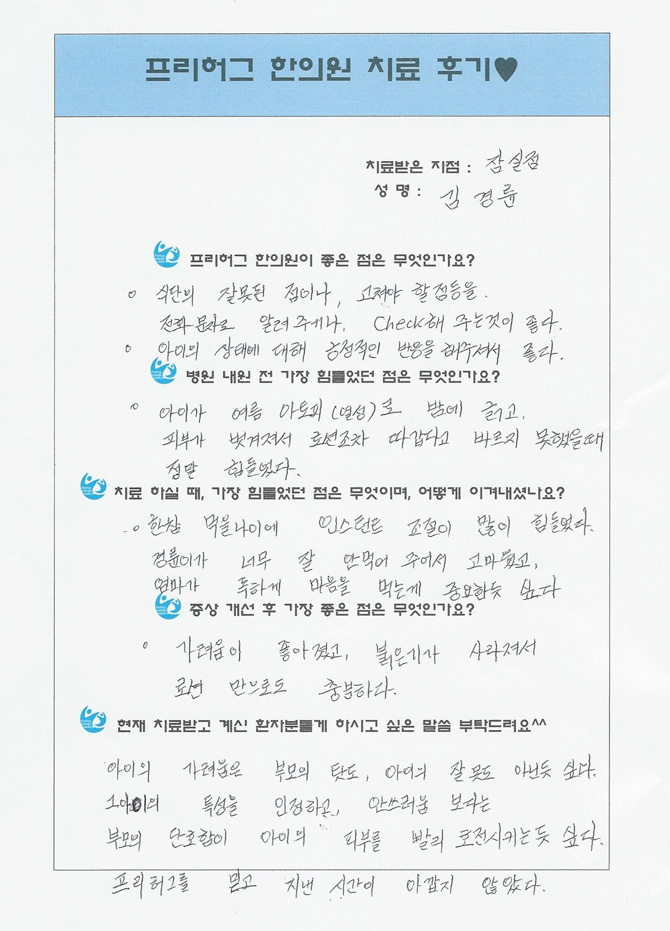 프리허그 한의원 치료 후기♥
치료받은 지점 : 잠실점
성 명 : 김경륜
프리허그 한의원이 좋은 점은 무엇인가요?
o 식단의 잘못된 점이나, 고쳐야 할점등을
전화문자로 알려주거나, Check해 주는것이 좋다.
o 아이의 상태에 대해 긍정적인 반응을 해주셔서 좋다.
병원 내원 전 가장 힘들었던 점은 무엇인가요?
o 아이가 여름 아토피(열성)로 밤에 긁고,
피부가 벗겨져서 로션조차 따갑다고 바르지 못했을때
정말 힘들었다.
치료 하실 때, 가장 힘들었던 점은 무엇이며, 어떻게 이겨내셨나요?
o 한참 먹을나이에 인스턴트 조절이 많이 힘들었다.
경륜이가 너무 잘 안먹어 주어서 고마웠고,
엄마가 독하게 마음을 먹는게 중요한듯 싶다
증상 개선 후 가장 좋은 점은 무엇인가요?
o 가려움이 좋아졌고, 붉은기가 사라져서
로션 만으로도 충분하다.
현재 치료받고 계신 환자분들게 하시고 싶은 말씀 부탁드려요^^
아이의 가려움은 부모의 탓도, 아이의 잘못도 아닌듯 싶다.
특성을 인정하고, 안쓰러움 보다는
부모의 단호함이 아이의 피부를 빨리 호전시키는듯 싶다.
프리허그를 믿고 지낸 시간이 아깝지 않았다.